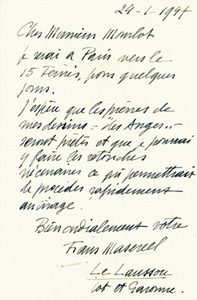 24-1-1947
Cher Monsieur Mourlot
je serai à Paris vers le
15 Février, pour quelques
jours.
J'espère que les pierres de
mes dessins = des Anges..-
seront prêts et que je pourrai
y faire les retouches
nécessaires ce qui permettrait
de procéder rapidement
au tirage.
Bien cordialement votre
Frans Masereel
Le Laussou
Lot et Garonne.